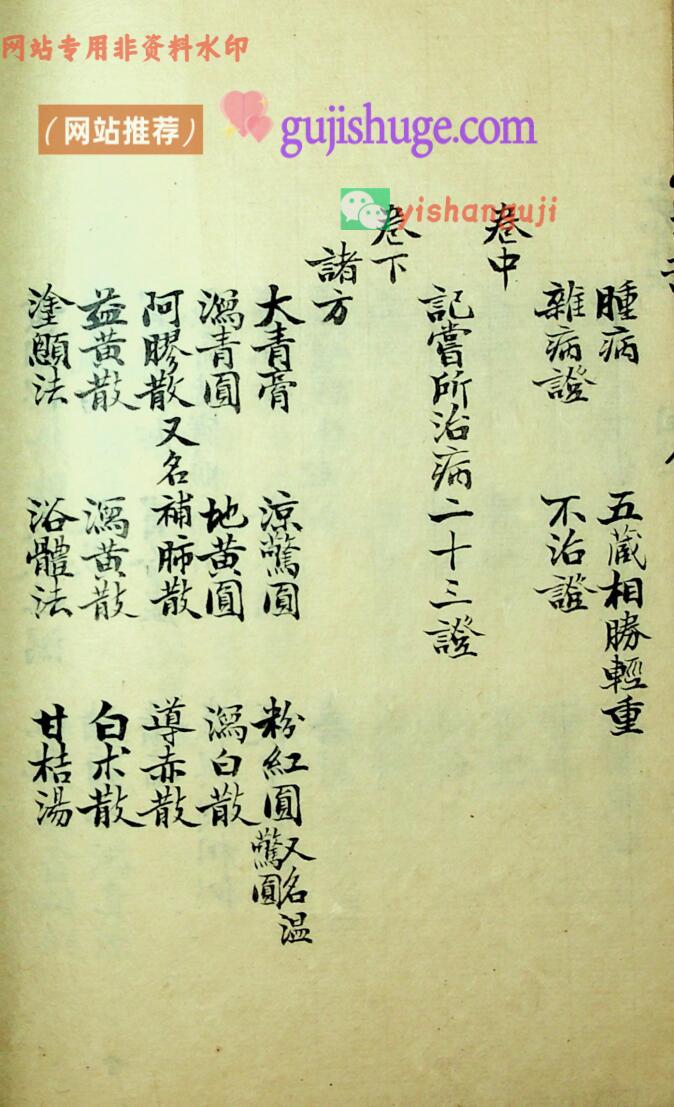 网站专用非资料水印
（网站推荐）
gujishuge.com
yishanguji
腫病 五蔵相勝輕重
雜病證 不治證
卷中
記嘗所治病二十三證
卷下
諸方
大青膏 涼驚圓 粉紅圓又名温驚圓
瀉青圓 地黄圓 瀉白散
阿膠散又名補肺散 導赤散
益黄散 瀉黄散 白术散
塗顖法 浴體法 甘桔湯